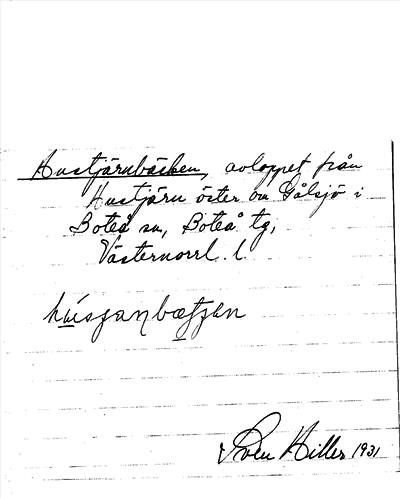 Hustjärnbäcken, avloppet från
Hustjärn öster om Gålsjö i
Boteå sn, Boteå tg,
Västernorrl. l.
Sven Hiller 1931